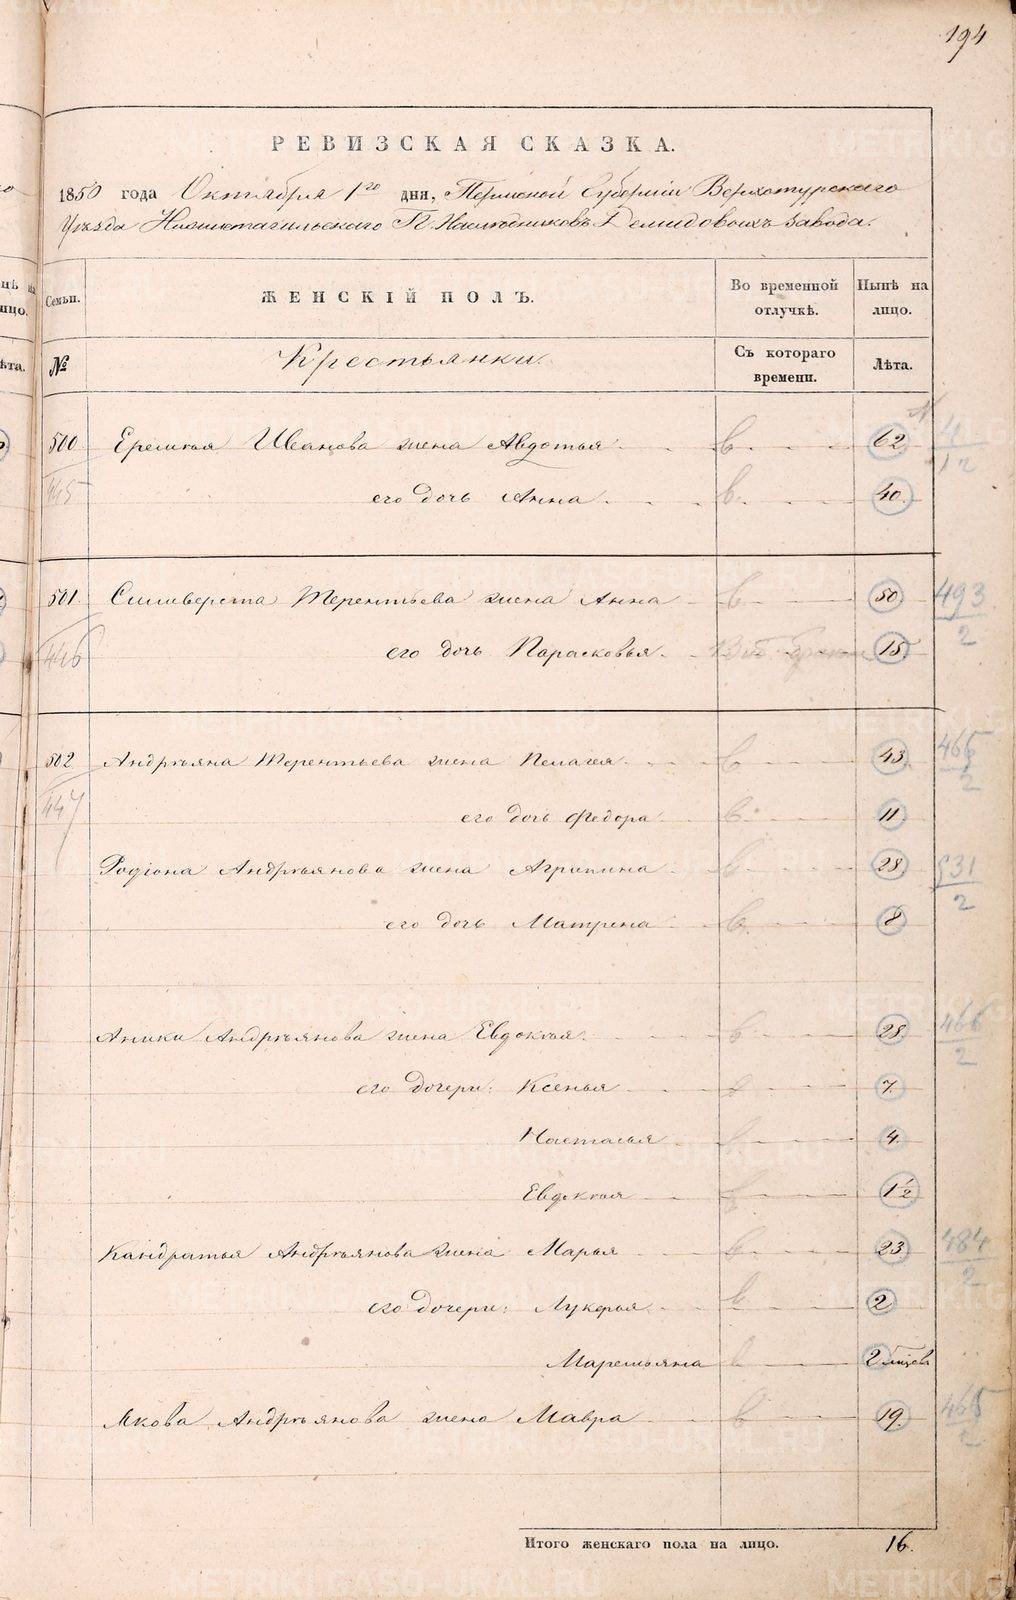 194
РЕВИЗСКАЯ СКАЗКА.
1850 года Октября 1го дни, Пермской Губерніи Верхотурскаго
Уѣзда Нижнетагильскаго П. Наслѣдниковъ Демидовыхъ завода.
Семьи. ЖЕНСКІЙ ПОЛЪ. Во временной отлучкѣ. Нынѣ на лицо.
№ Крестьянки. Съ котораго времени. Лѣта.
500 Еремѣя Иванова жена Авдотья в 62
445 его дочь Анна в 40
501 Силиверста Терентьева жена Анна в 50 493/2
446 его дочь Парасковья 15
502 Андрѣяна Терентьева жена Пелагея в 43 465/2
447 его дочь Федора в 11
Родіона Андрѣянова жена Агрипина в 28 531/2
его дочь Матрена в 8
Аники Андрѣянова жена Евдокѣя в 28 466/2
его дочери: Ксенья 7
Настасья в 4
Евдокѣя в 1½
Кандратья Андрѣянова жена Марья в 23 484/2
его дочери: Лукерья в 2
Маремьяна в 2
Якова Андрѣянова жена Мавра в 19 465/2
Итого женскаго пола на лицо. 16.
METRIKI.GASO-URAL.RU